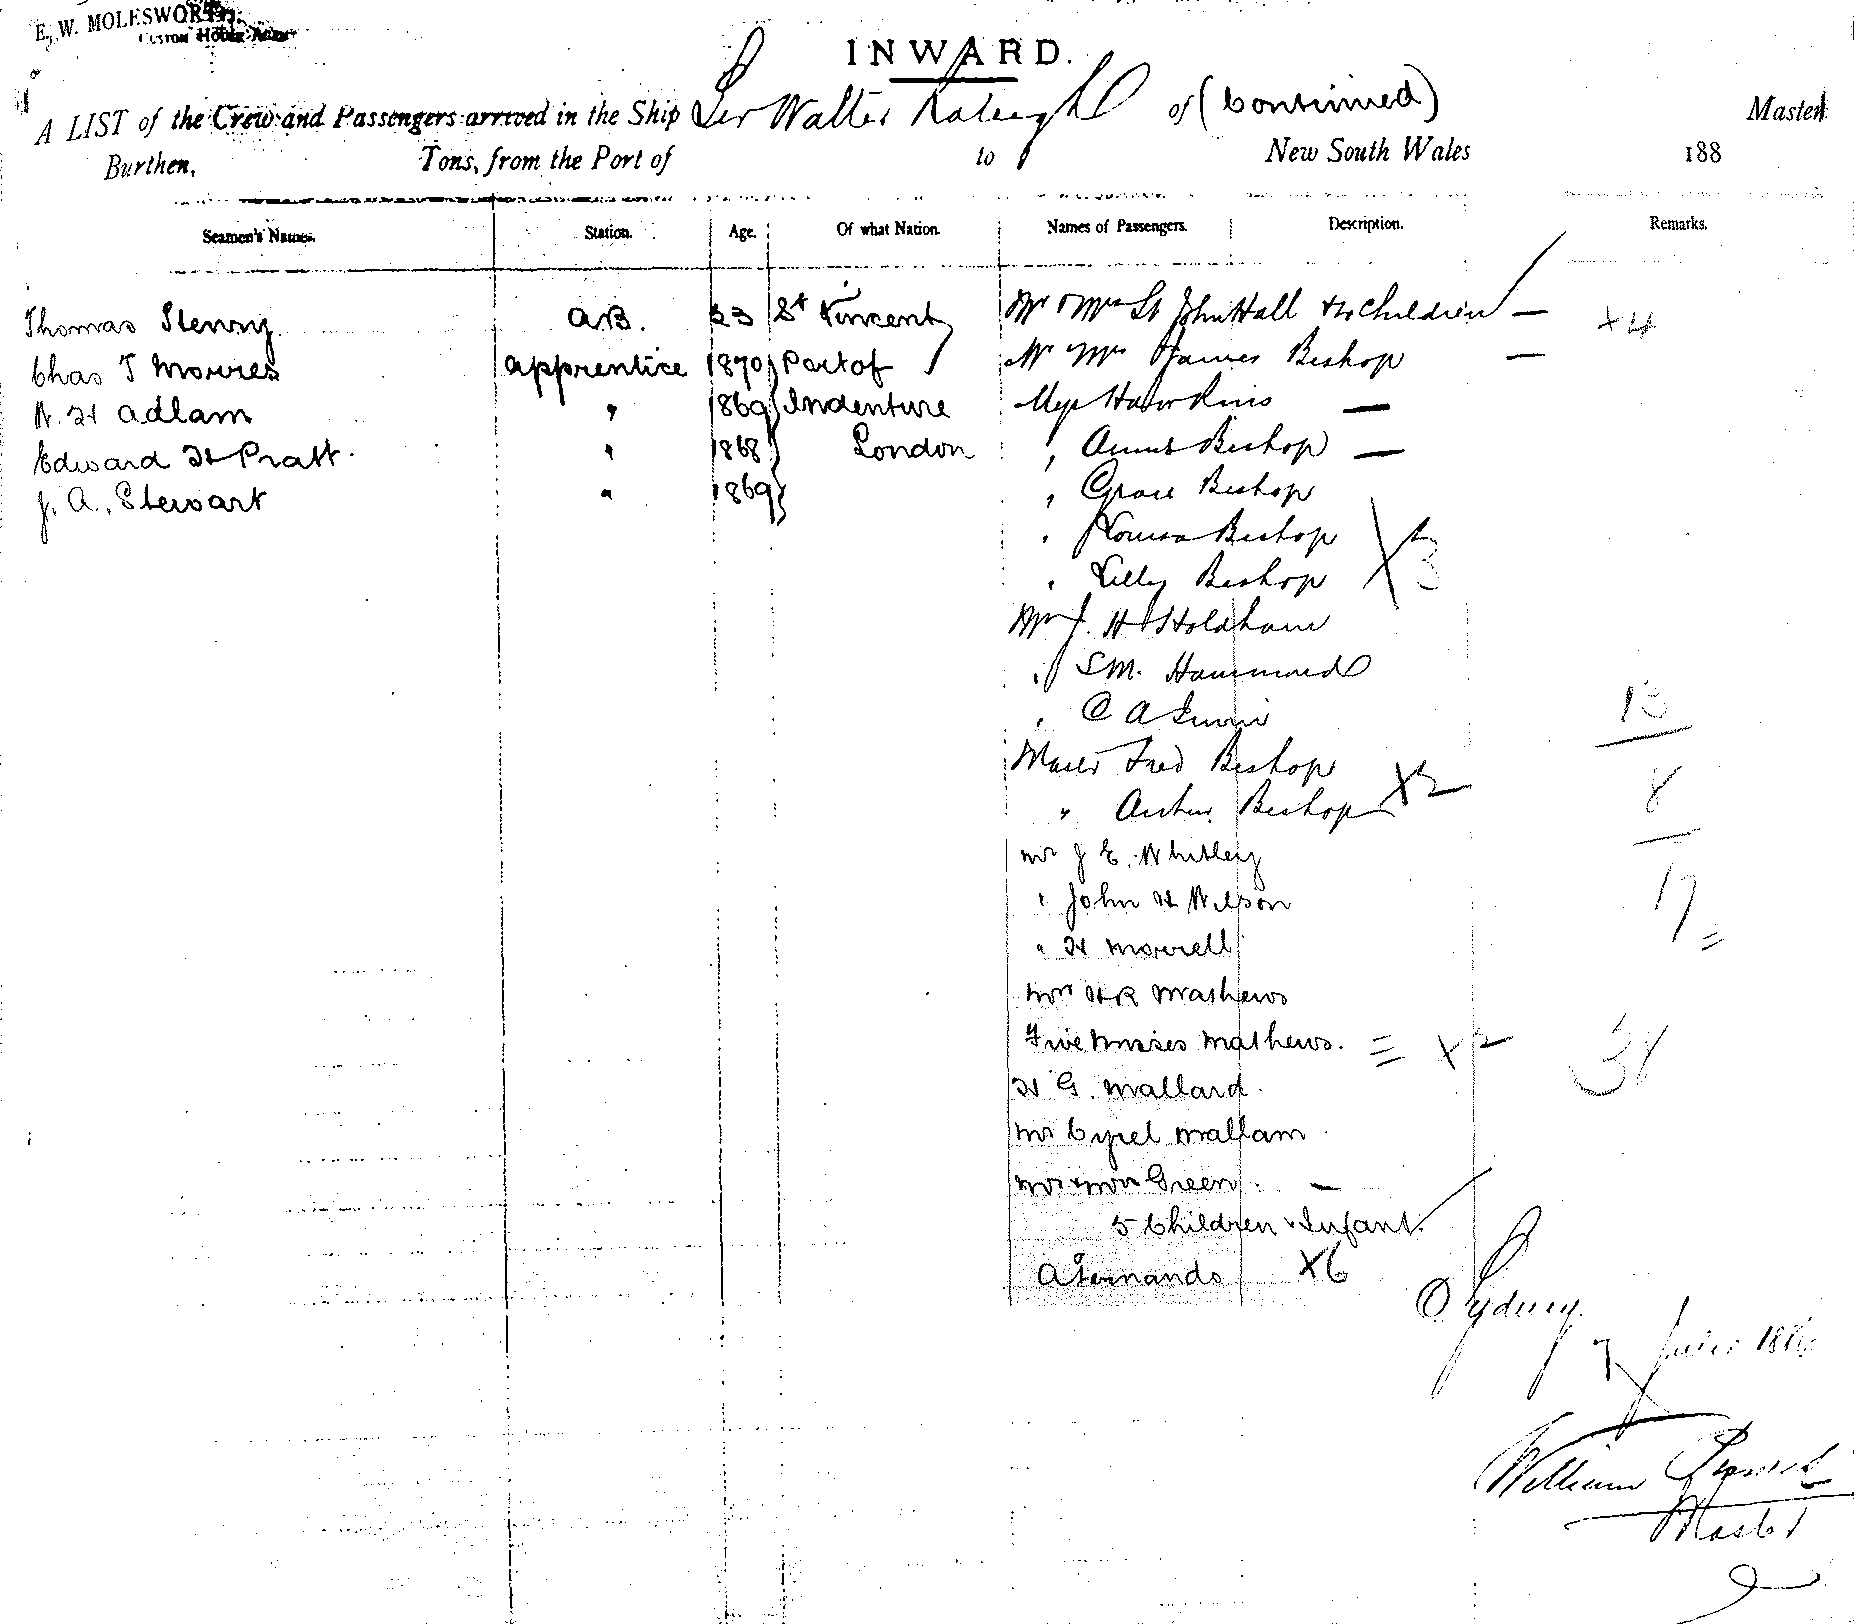 E. W. MOLESWORTH,
CUSTOM HOUSE AGENT
INWARD.
A LIST of the Crew and Passengers arrived in the Ship Sir Walter Raleigh of (Continued) Master
Burthen, Tons, from the Port of to New South Wales 188
Seamen's Names. Station. Age. Of what Nation. Names of Passengers. Description. Remarks.
Thomas A.B. 23 St Vincent Mr & Mrs St John Hall & 4 Children — × 4
Chas T Morres Apprentice 1870 } Port of Mr & Mrs James Bishop —
W. H Adlam " 1869 } Indenture Miss Hawkins —
Edward H Pratt. " 1868 } London " Bishop —
J. A. Stewart " 1869 } " Grace Bishop
" Louisa Bishop × 3
" Lilly Bishop
Mr J. H Holdham
" S M. Hammond
" C A 13
Master Fred Bishop
" Arthur Bishop × 2 8
Mr J E. Whitley
" John H Wilson 17
" H Morrell
Mrs H R Mathews
Five Misses Mathews. = × 2 38
H G. Mallard.
Mr Cyrel Mallam
Mr & Mrs Green. —
5 Children & Infant.
A Fernando × 6
Sydney.
7 June 188
William
Master